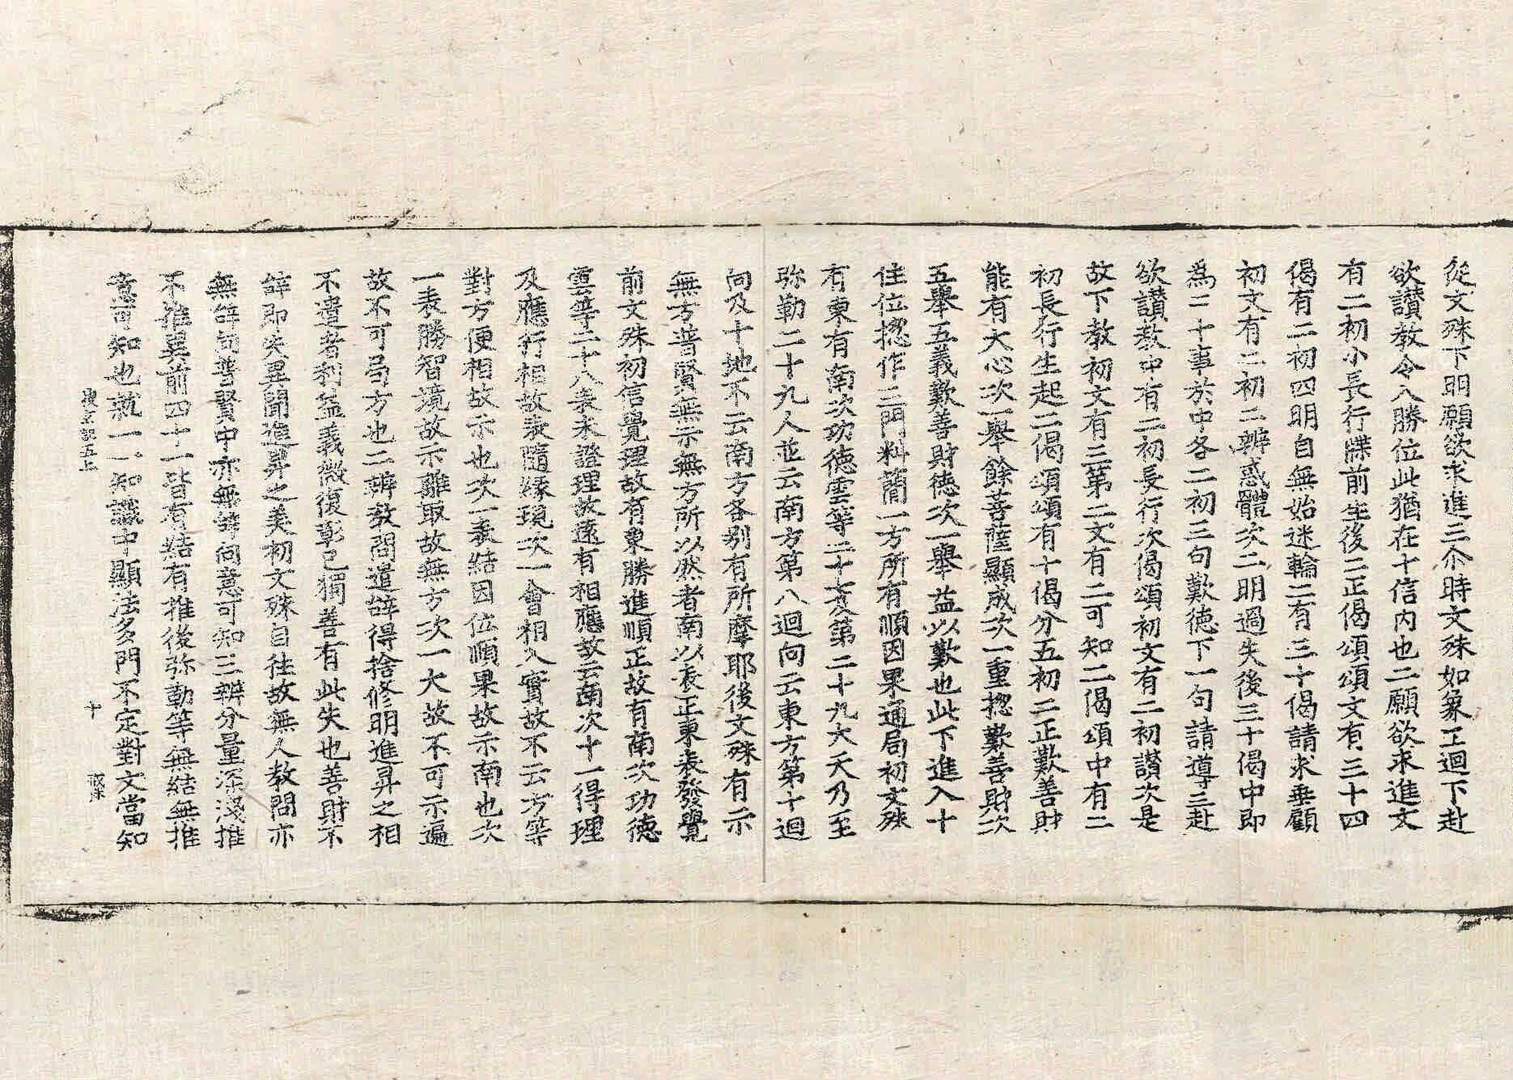 從文殊下明願欲求進三尒時文殊如象王迴下赴
欲讃教令入勝位此猶在十信內也二願欲求進文
有二初小長行牒前生後二正偈頌頌文有三十四
偈有二初四明自無始迷輪二有三十偈請求垂顧
初文有二初二辨惑體次二明過失後三十偈中即
為二十事於中各二初三句歎徳下一句請導三赴
欲讃教中有二初長行次偈頌初文有二初讃次是
故下教初文有三第二文有二可知二偈頌中有二
初長行生起二偈頌頌有十偈分五初二正歎善財
能有大心次一舉餘菩薩顯成次一重揔歎善財次
五舉五義歎善財徳次一舉益以歎也此下進入十
住位揔作三門料蕳一方所有順因果通局初文殊
有東有南次功徳雲等二十七及第二十九大天乃至
弥勒二十九人並云南方第八迴向云東方第十迴
向及十地不云南方各别有所摩耶後文殊有示
無方普賢無示無方所以然者南以表正東表發覺
前文殊初信覺理故有東勝進順正故有南次功徳
雲等二十八表未證理故遠有相應故云南次十一得理
及應行相故表隨縁現次一會相入實故不云方等
對方便相故示也次一表結因位順果故示南也次
一表勝智境故示離取故無方次一大故不可示遍
故不可局方也二辨教問遣辝得捨修明進昇之相
不遣者利益義微復彰已獨善有此失也善財不
辝即失異聞進昇之美初文殊自往故無人教問亦
無辝句普賢中亦無辝问意可知三辨分量深淺推
不推異前四十一皆有結有推後弥勒等無結無推
意可知也就一一知識中顯法多門不定對文當知
搜玄記五上 十